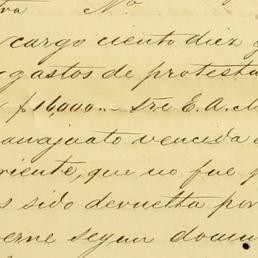 tra No
cargo ciento diez y
gastos de protesta
$16,000.- Sre E. A. M
anajuato vencida e
riente, que no fue p
s sido devuelta por
erne segun docum